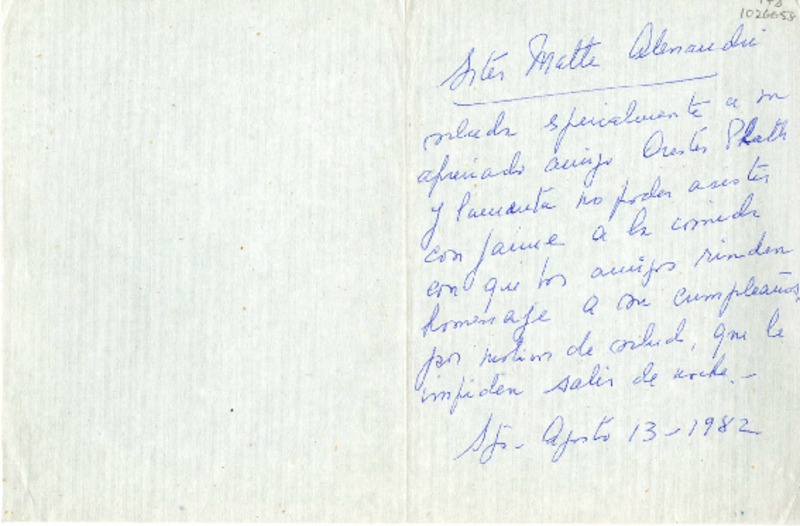 1026658
Ester Matte Alessandri
saluda especialmente a su
apreciado amigo Oreste Plath
y lamenta no poder asistir
con Jaime a la comida
con que los amigos rinden
homenaje a su cumpleaños,
por motivos de salud, que le
impiden salir de noche.-
Stgo- Agosto 13-1982